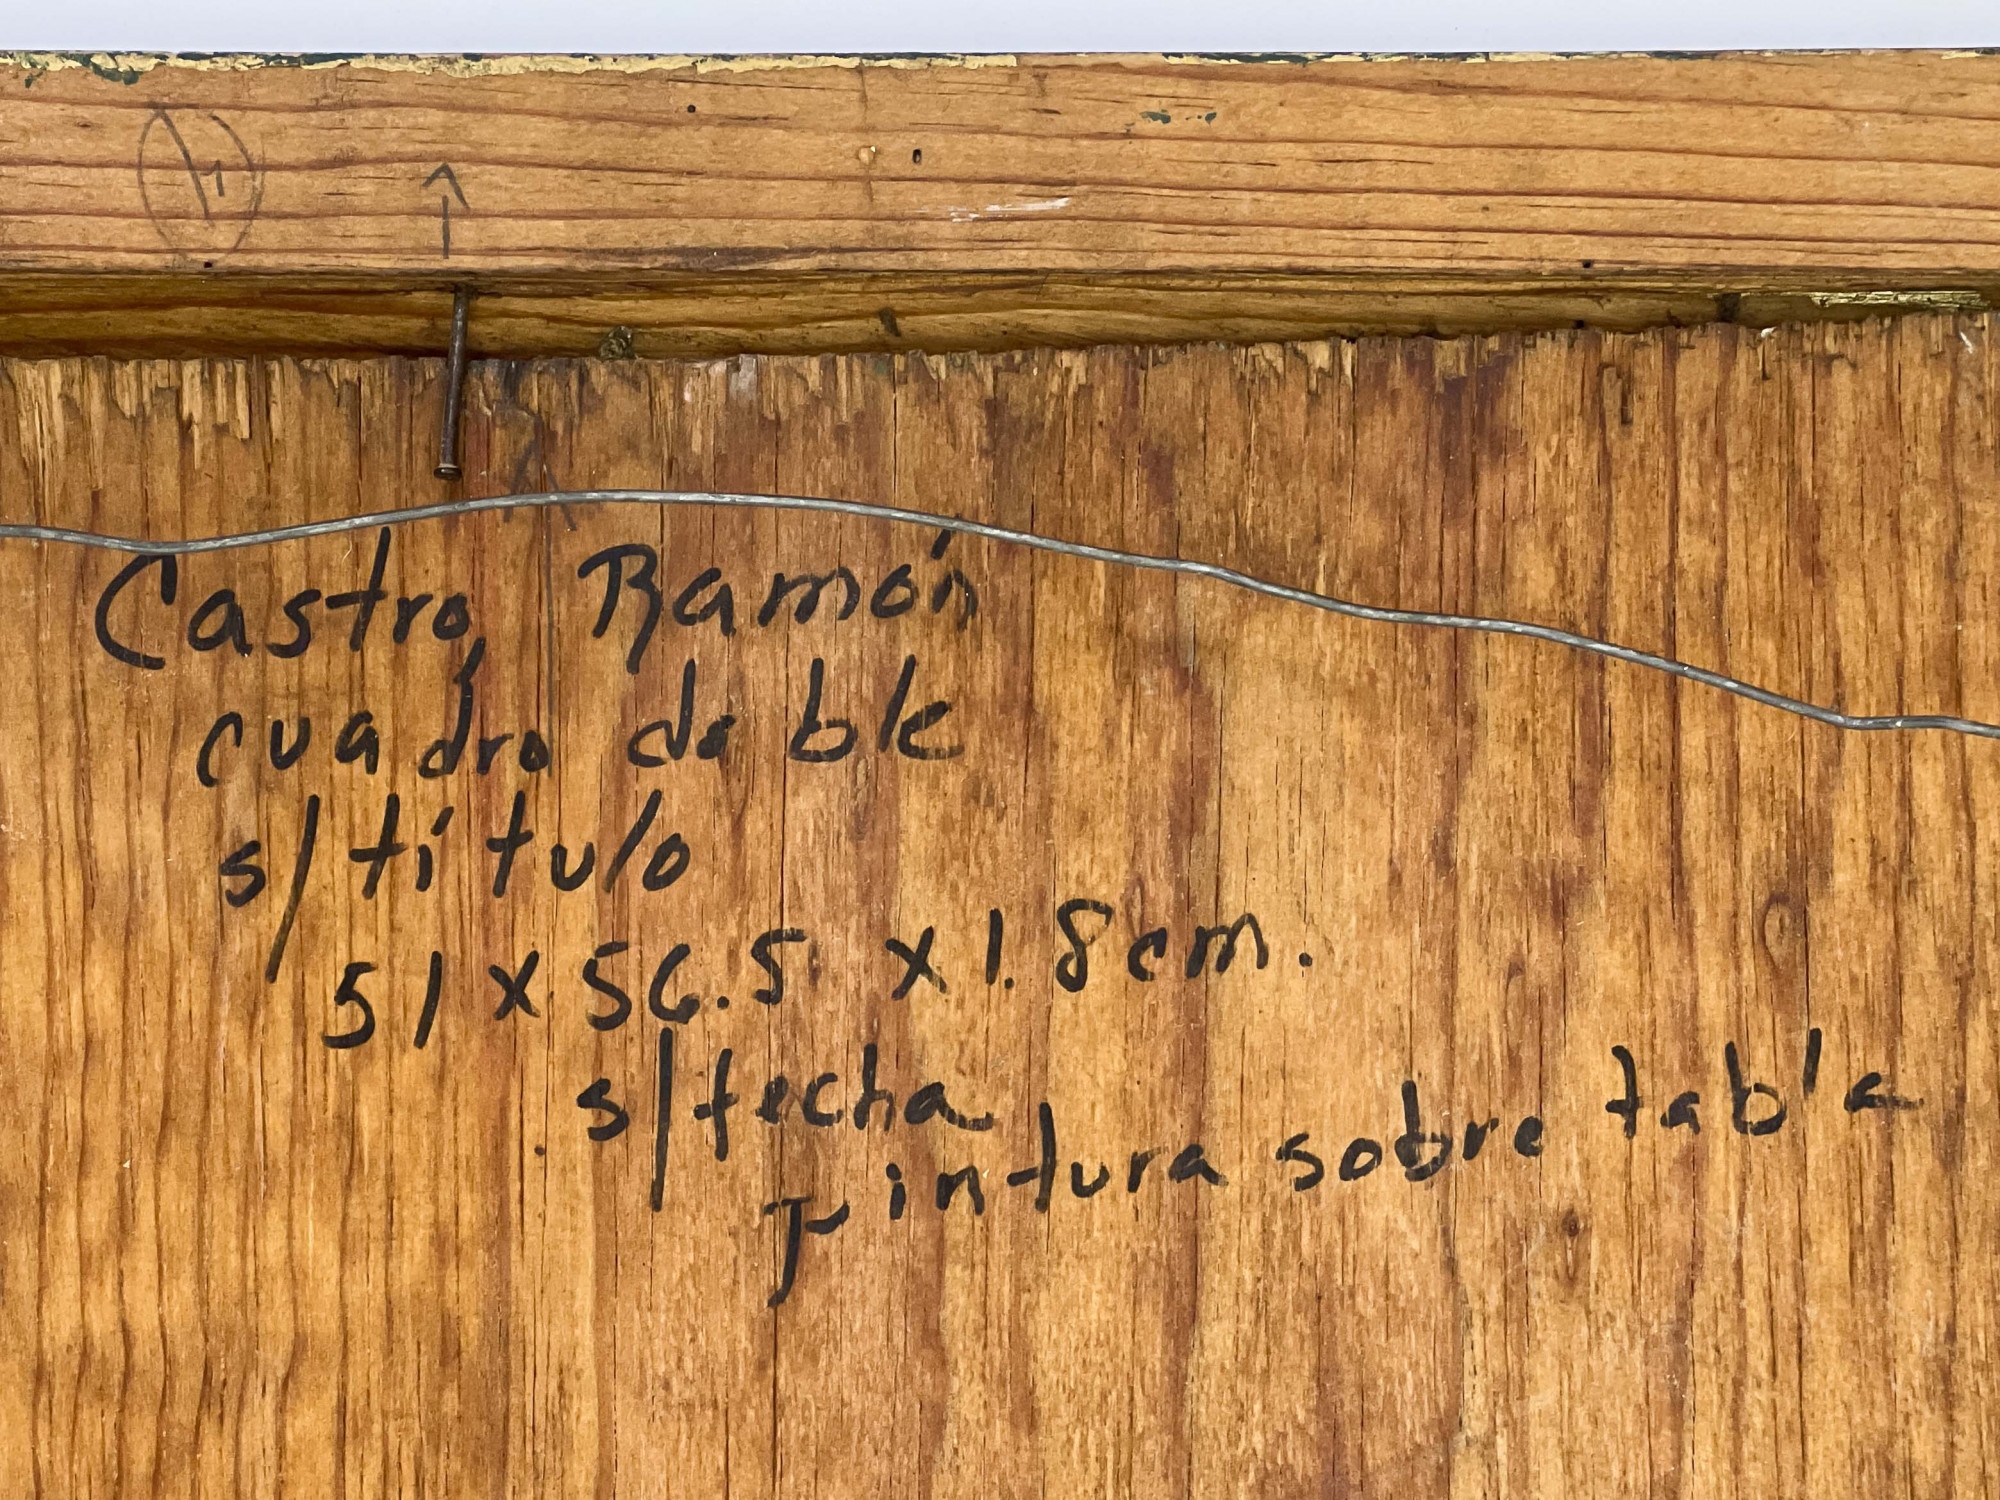 Castro, Ramón
cuadro doble
s/título
51 x 56.5 x 1.8 cm.
s/fecha
pintura sobre tabla